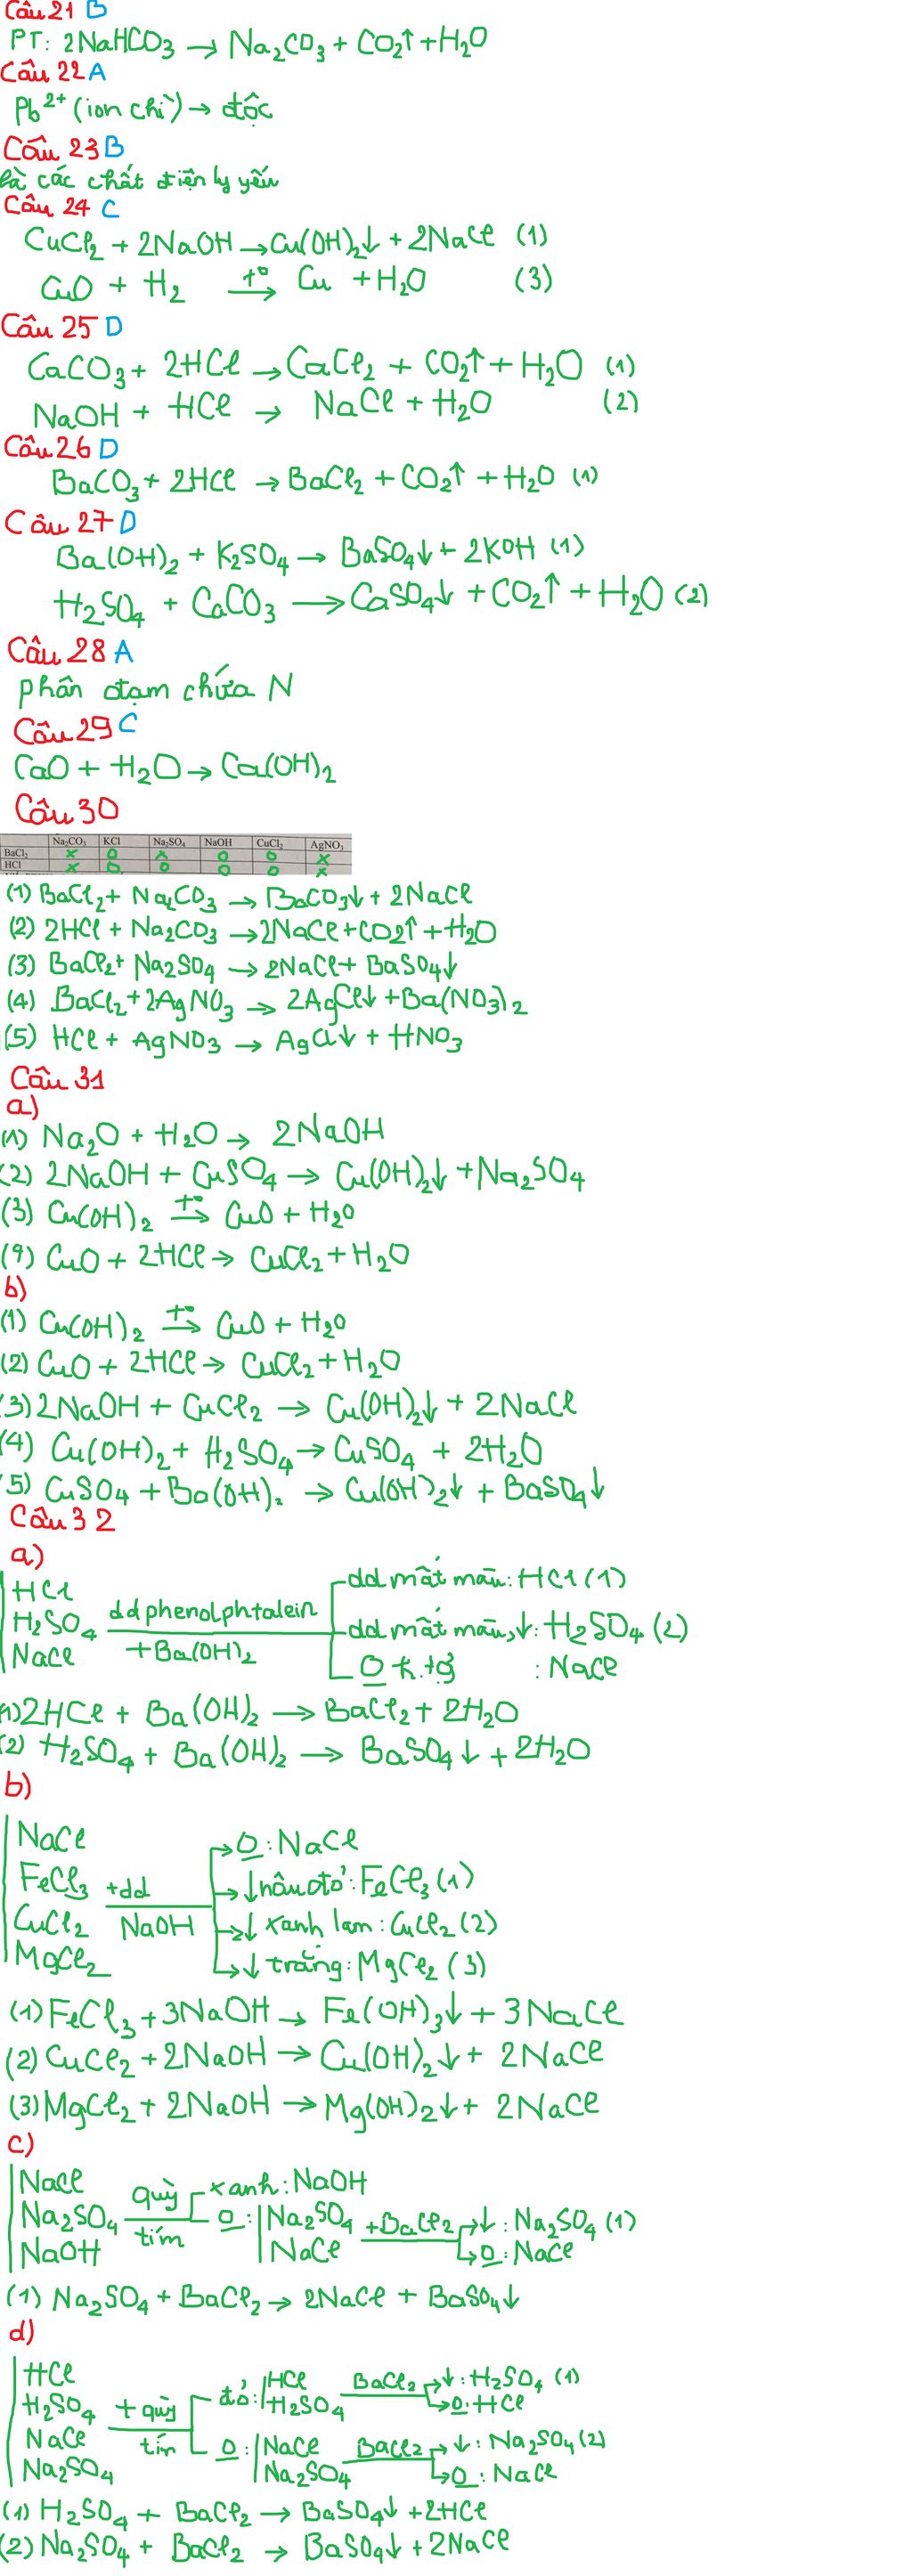 Câu 21 B
PT: 2NaHCO₃ → Na₂CO₃ + CO₂↑ + H₂O
Câu 22 A
Pb²⁺ (ion chì) → độc
Câu 23 B
là các chất điện ly yếu
Câu 24 C
CuCl₂ + 2NaOH → Cu(OH)₂↓ + 2NaCl (1)
CuO + H₂ –t°→ Cu + H₂O (3)
Câu 25 D
CaCO₃ + 2HCl → CaCl₂ + CO₂↑ + H₂O (1)
NaOH + HCl → NaCl + H₂O (2)
Câu 26 D
BaCO₃ + 2HCl → BaCl₂ + CO₂↑ + H₂O (1)
Câu 27 D
Ba(OH)₂ + K₂SO₄ → BaSO₄↓ + 2KOH (1)
H₂SO₄ + CaCO₃ → CaSO₄↓ + CO₂↑ + H₂O (2)
Câu 28 A
phân đạm chứa N
Câu 29 C
CaO + H₂O → Ca(OH)₂
Câu 30
Na₂CO₃ KCl Na₂SO₄ NaOH CuCl₂ AgNO₃
BaCl₂ x 0 x 0 0 x
HCl x 0 0 0 0 x
(1) BaCl₂ + Na₂CO₃ → BaCO₃↓ + 2NaCl
(2) 2HCl + Na₂CO₃ → 2NaCl + CO₂↑ + H₂O
(3) BaCl₂ + Na₂SO₄ → 2NaCl + BaSO₄↓
(4) BaCl₂ + 2AgNO₃ → 2AgCl↓ + Ba(NO₃)₂
(5) HCl + AgNO₃ → AgCl↓ + HNO₃
Câu 31
a)
(1) Na₂O + H₂O → 2NaOH
(2) 2NaOH + CuSO₄ → Cu(OH)₂↓ + Na₂SO₄
(3) Cu(OH)₂ –t°→ CuO + H₂O
(4) CuO + 2HCl → CuCl₂ + H₂O
b)
(1) Cu(OH)₂ –t°→ CuO + H₂O
(2) CuO + 2HCl → CuCl₂ + H₂O
(3) 2NaOH + CuCl₂ → Cu(OH)₂↓ + 2NaCl
(4) Cu(OH)₂ + H₂SO₄ → CuSO₄ + 2H₂O
(5) CuSO₄ + Ba(OH)₂ → Cu(OH)₂↓ + BaSO₄↓
Câu 32
a)
HCl
H₂SO₄
NaCl
dd phenolphtalein
+Ba(OH)₂
dd mất màu: HCl (1)
dd mất màu, ↓: H₂SO₄ (2)
O : NaCl
(1) 2HCl + Ba(OH)₂ → BaCl₂ + 2H₂O
(2) H₂SO₄ + Ba(OH)₂ → BaSO₄↓ + 2H₂O
b)
NaCl
FeCl₃
CuCl₂
MgCl₂
+dd
NaOH
→ O: NaCl
→ ↓ nâu đỏ: FeCl₃ (1)
→ ↓ xanh lam: CuCl₂ (2)
→ ↓ trắng: MgCl₂ (3)
(1) FeCl₃ + 3NaOH → Fe(OH)₃↓ + 3NaCl
(2) CuCl₂ + 2NaOH → Cu(OH)₂↓ + 2NaCl
(3) MgCl₂ + 2NaOH → Mg(OH)₂↓ + 2NaCl
c)
NaCl
Na₂SO₄
NaOH
quỳ
tím
xanh: NaOH
O: Na₂SO₄
NaCl
+BaCl₂
→ ↓: Na₂SO₄ (1)
→ O: NaCl
(1) Na₂SO₄ + BaCl₂ → 2NaCl + BaSO₄↓
d)
HCl
H₂SO₄
NaCl
Na₂SO₄
+ quỳ
tím
đỏ: HCl
H₂SO₄
BaCl₂
→ ↓: H₂SO₄ (1)
→ O: HCl
O: NaCl
Na₂SO₄
BaCl₂
→ ↓: Na₂SO₄ (2)
→ O: NaCl
(1) H₂SO₄ + BaCl₂ → BaSO₄↓ + 2HCl
(2) Na₂SO₄ + BaCl₂ → BaSO₄↓ + 2NaCl